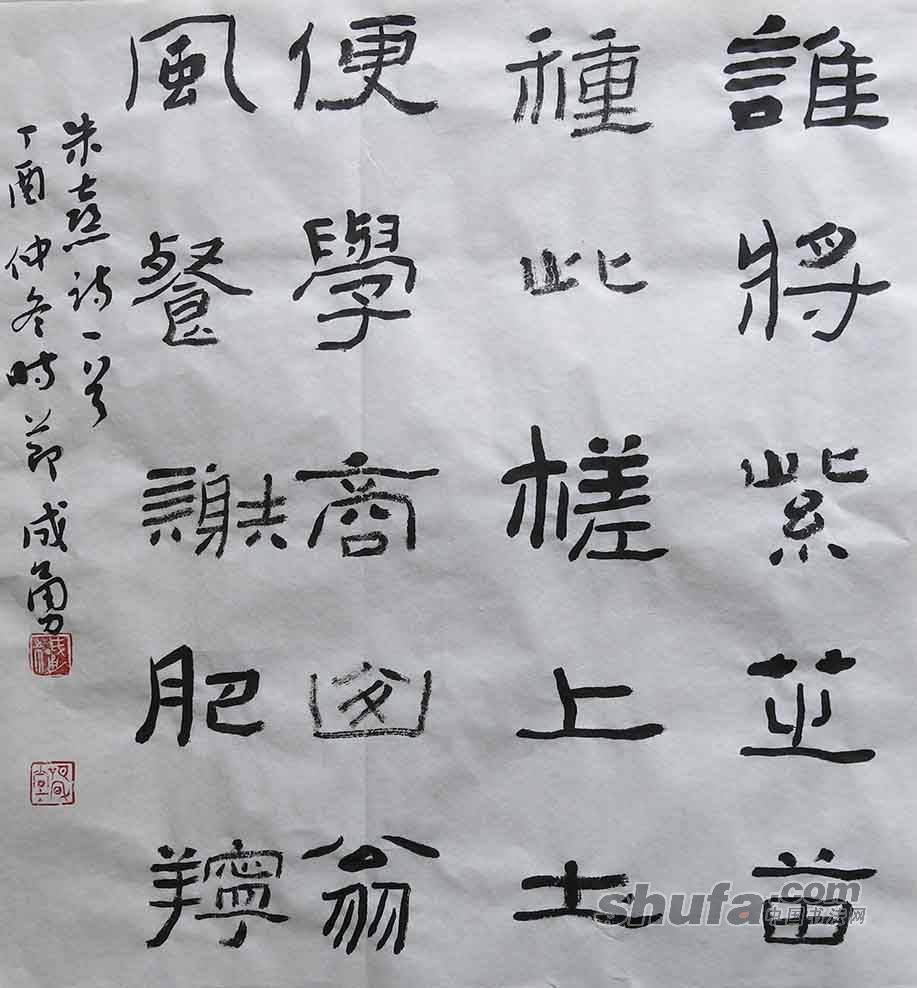 誰將紫芝苗
種此槎上土
便學商翁
風餐謝肥
朱熹詩一首
丁酉仲冬時節成勇
shufa.com
中国书法网